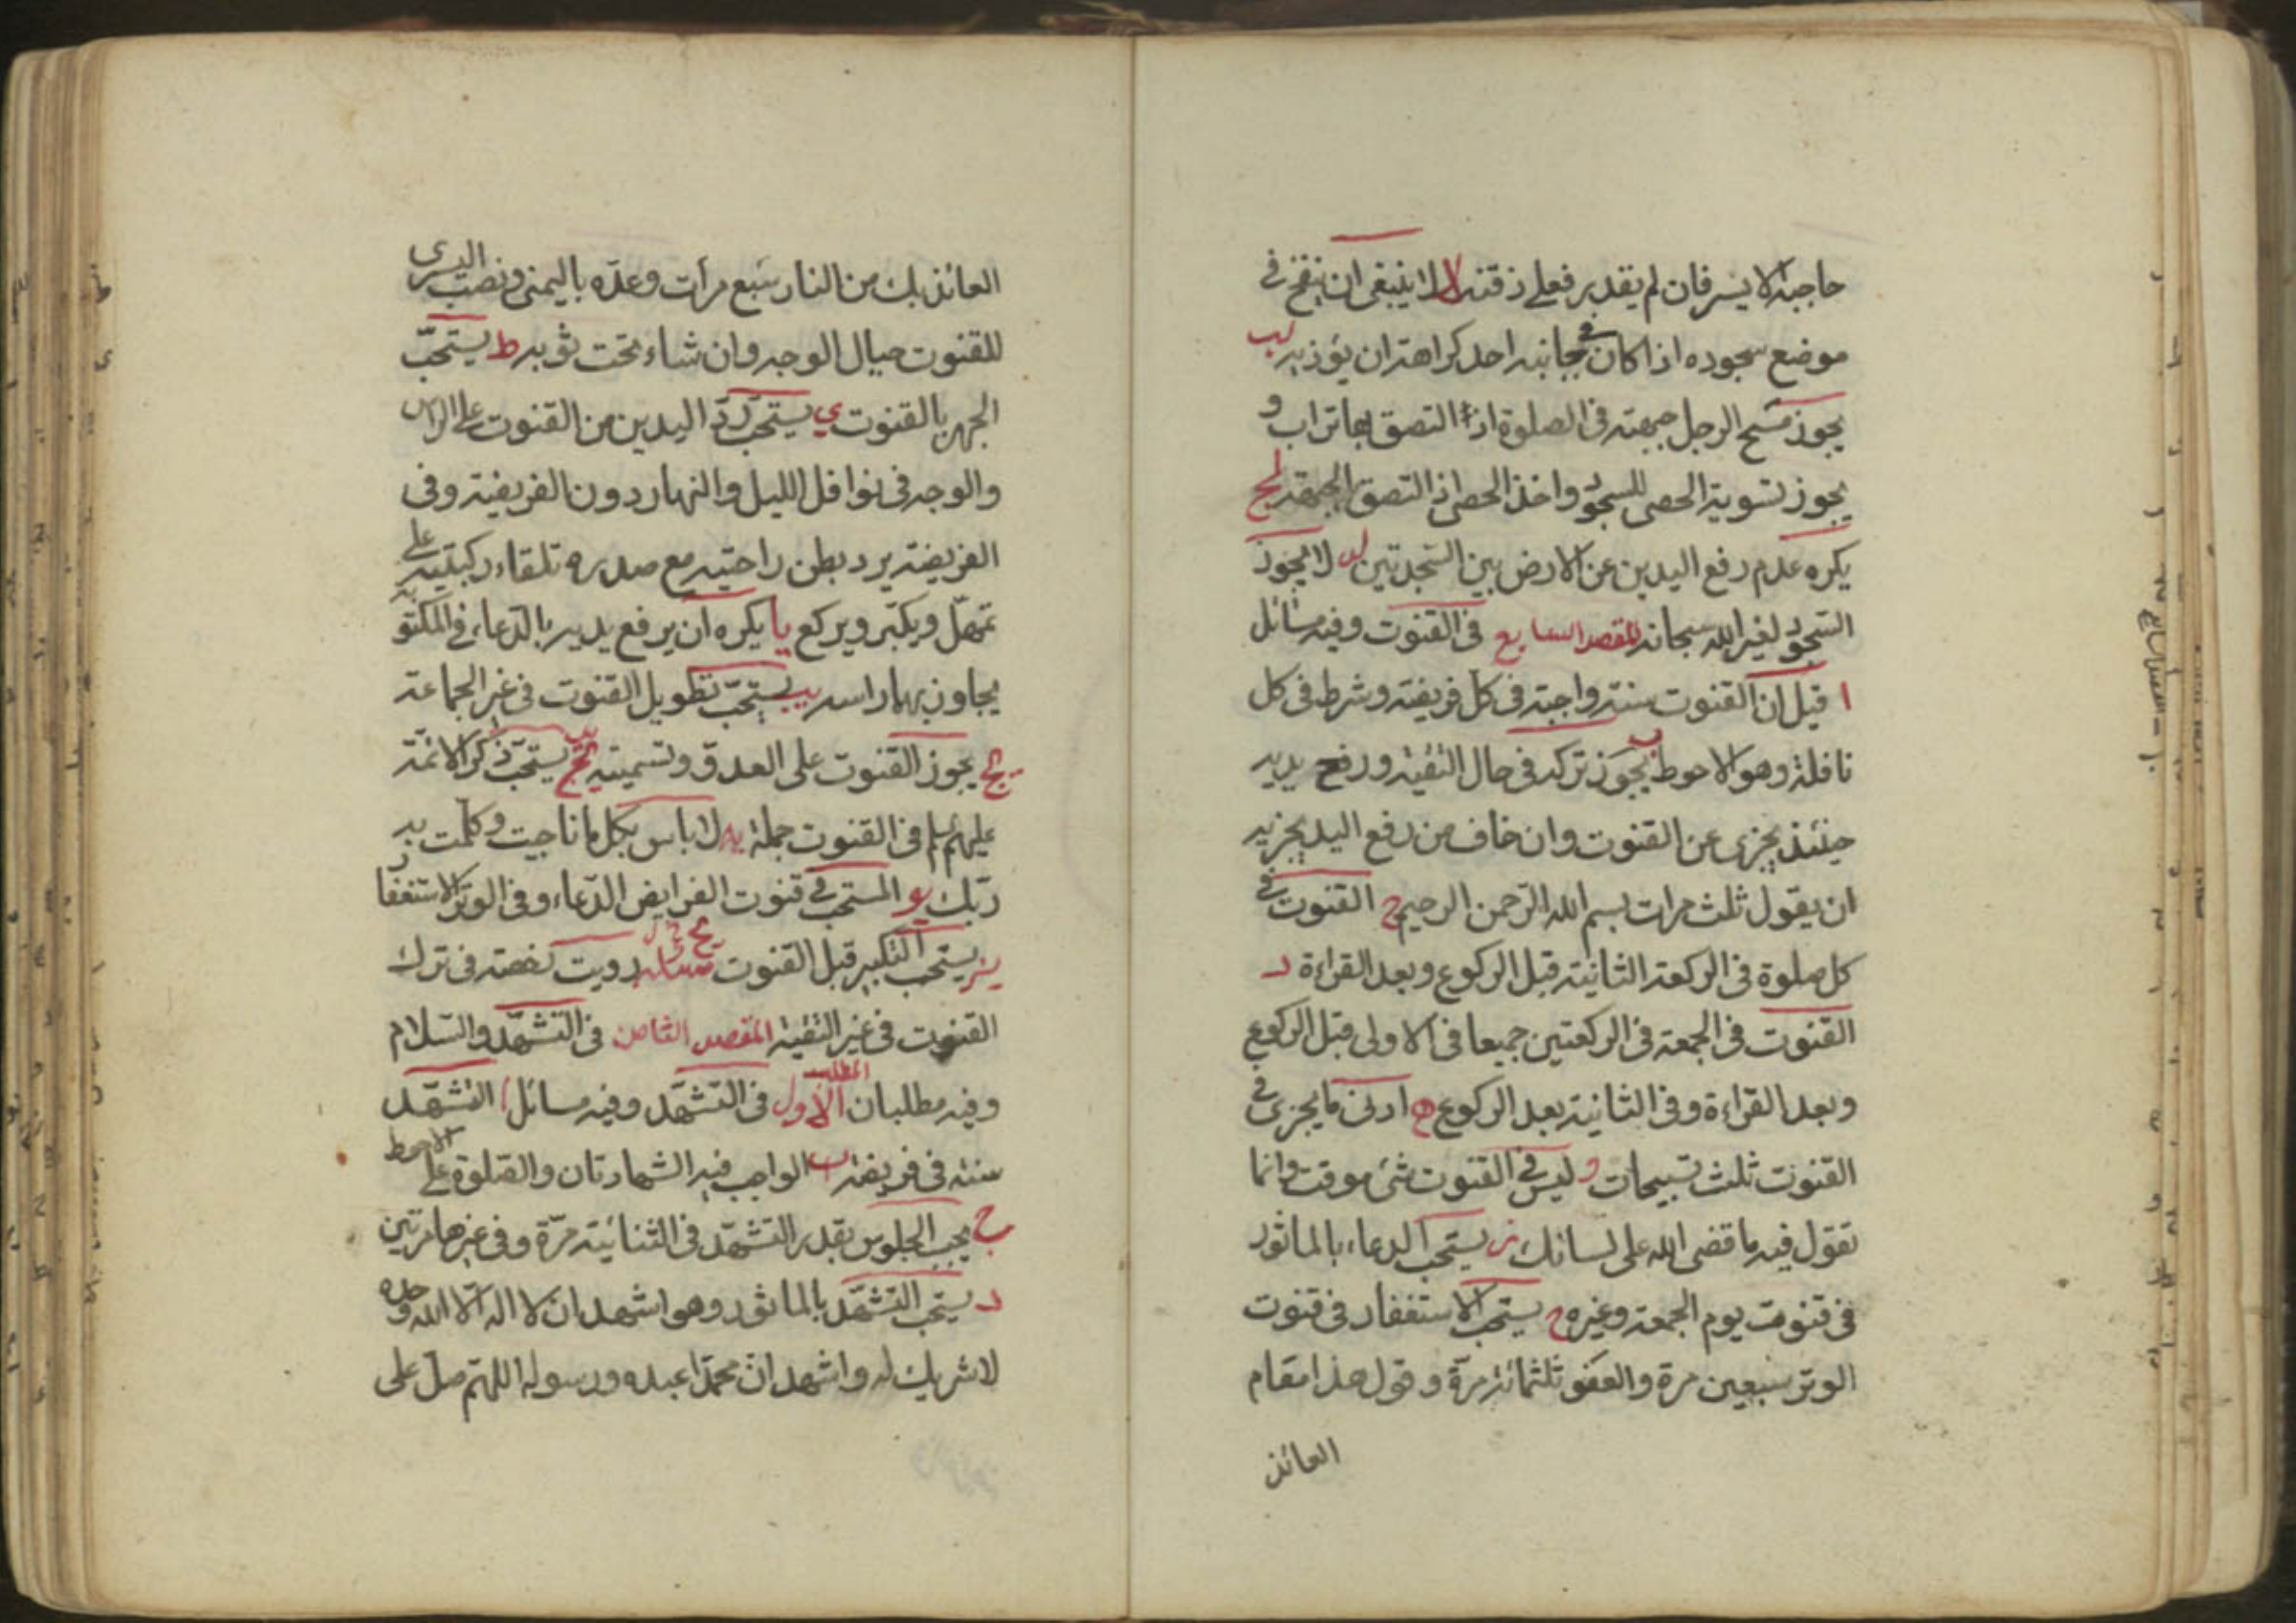 حاجبه الايسر فان لم يقدر فعلى ذقنه لا لا ينبغى ان ينفخ فى
موضع سجوده اذا كان فى جانبه احد كراهة ان يؤذيه لب
يجوز مسح الرجل جبهته فى الصلوة اذا التصق بها تراب و
يجوز تسوية الحصى للسجود واخذ الحصى اذ التصق بالجبهة لج
يكره عدم رفع اليدين عن الارض بين السجدتين لد لا يجوز
السجود لغير الله سبحانه المقصد السابع فى القنوت وفيه مسائل
ا قيل ان القنوت سنة واجبة فى كل فريضة وشرط فى كل
نافلة وهو الاحوط ب يجوز تركه فى حال التقية ورفع يديه
حينئذ يجزى عن القنوت وان خاف من رفع اليد يجزيه
ان يقول ثلث مرات بسم الله الرحمن الرحيم ج القنوت فى
كل صلوة فى الركعة الثانية قبل الركوع وبعد القراءة د
القنوت فى الجمعة فى الركعتين جميعا فى الاولى قبل الركوع
وبعد القراءة وفى الثانية بعد الركوع ه ادنى ما يجزى فى
القنوت ثلث تسبيحات و ليس فى القنوت شئ موقت وانما
تقول فيه ما قضى الله على لسانك ز يستحب الدعاء بالماثور
فى قنوت يوم الجمعة وغيره ح يستحب الاستغفار فى قنوت
الوتر سبعين مرة والعفو ثلثمائة مرة وقول هذا مقام
العائذ
العائذ بك من النار سبع مرات وعده باليمنى ونصب اليسرى
للقنوت حيال الوجه وان شاء تحت ثوبه ط يستحب
الجهر بالقنوت ي يستحب رد اليدين من القنوت على الراس
والوجه فى نوافل الليل والنهار دون الفريضة وفى
الفريضة يرد بطن راحتيه مع صدره تلقاء ركبتيه على
تمهل ويكبر ويركع يا يكره ان يرفع يديه بالدعاء فى المكتوبة
يجاوز بهما راسه يب يستحب تطويل القنوت فى غير الجماعة
يج يجوز القنوت على العدو وتسميته يد يستحب ذكر الائمة
عليهم السلم فى القنوت جملة يه لا باس بكل ما ناجيت وكلمت به
ربك يو المستحب فى قنوت الفرايض الدعاء وفى الوتر الاستغفار
يز يستحب التكبير قبل القنوت يح رويت رخصة فى ترك
القنوت فى غير التقية المقصد الثامن فى التشهد والسلام
وفيه مطلبان المطلب الاول فى التشهد وفيه مسائل ا التشهد
سنة فى فريضة ب الواجب فيه الشهادتان والصلوة على الاحوط
ج يجب الجلوس بقدر التشهد فى الثنائية مرة وفى غيرها مرتين
د يستحب التشهد بالماثور وهو اشهد ان لا اله الا الله وحده
لا شريك له واشهد ان محمدا عبده ورسوله اللهم صل على